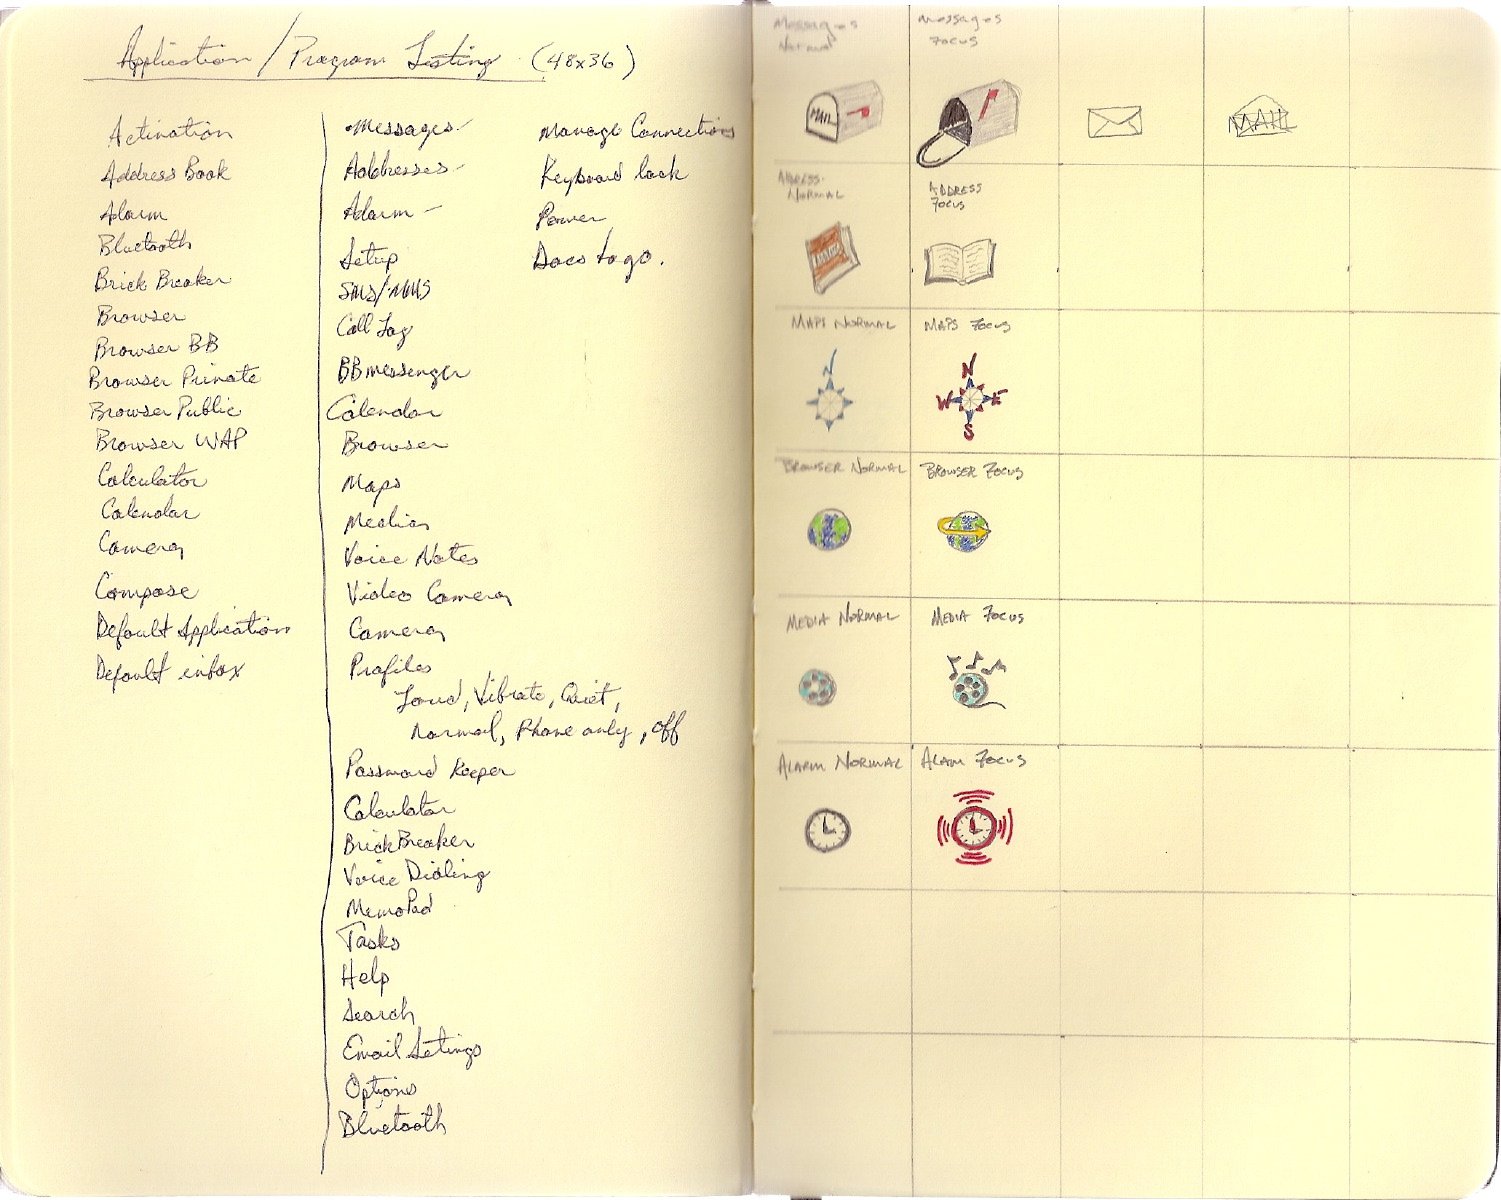 Application/Program Listing (48x36)
Activation
Address Book
Alarm
Bluetooth
Brick Breaker
Browser
Browser BB
Browser Private
Browser Public
Browser WAP
Calculator
Calendar
Camera
Compose
Default Application
Default inbox
Messages
Addresses
Alarm
Setup
SMS/MMS
Call Log
BBmessenger
Calendar
Browser
Maps
Media
Voice Notes
Video Camera
Camera
Profiles
Loud, Vibrate, Quiet,
Normal, Phone only, off
Password Keeper
Calculator
BrickBreaker
Voice Dialing
MemoPad
Tasks
Help
Search
Email Setings
Options
Bluetooth
Manage Connections
Keyboard lock
Power
Docs to go.
Messages
Normal
Messages
Focus
MAIL
MAIL
Address
Normal
Address
Focus
Maps Normal
Maps Focus
N
N
W E
S
Browser Normal
Browser Focus
Media Normal
Media Focus
Alarm Normal
Alarm Focus